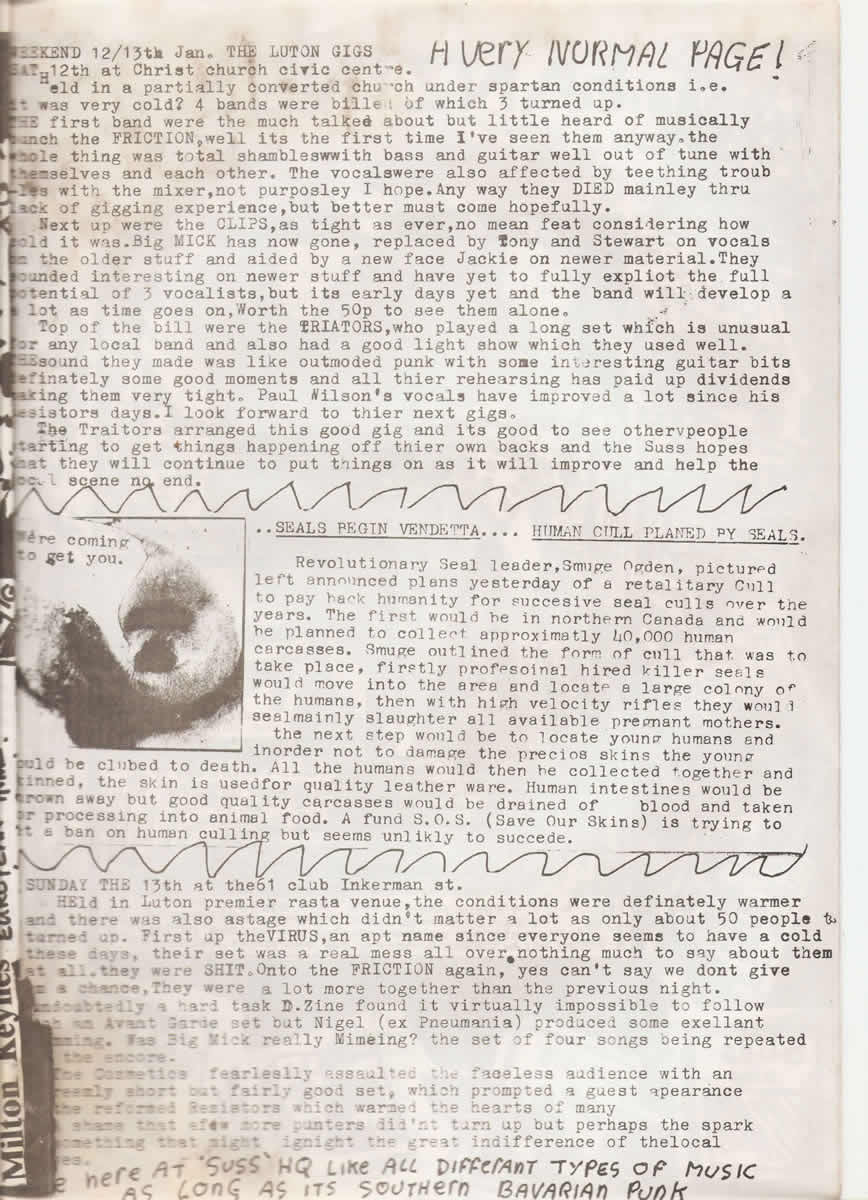 A VERY NORMAL PAGE!
WEEKEND 12/13th Jan. THE LUTON GIGS
SAT 12th at Christ church civic centre.
Held in a partially converted church under spartan conditions i.e.
it was very cold? 4 bands were billed of which 3 turned up.
THE first band were the much talked about but little heard of musically
bunch the FRICTION,well its the first time I've seen them anyway.the
whole thing was total shambleswwith bass and guitar well out of tune with
themselves and each other. The vocalswere also affected by teething troub
-les with the mixer,not purposley I hope.Any way they DIED mainley thru
lack of gigging experience,but better must come hopefully.
Next up were the CLIPS,as tight as ever,no mean feat considering how
cold it was.Big MICK has now gone, replaced by Tony and Stewart on vocals
on the older stuff and aided by a new face Jackie on newer material.They
sounded interesting on newer stuff and have yet to fully expliot the full
potential of 3 vocalists,but its early days yet and the band will develop a
a lot as time goes on,Worth the 50p to see them alone.
Top of the bill were the TRIATORS,who played a long set which is unusual
for any local band and also had a good light show which they used well.
THEsound they made was like outmoded punk with some interesting guitar bits
definately some good moments and all thier rehearsing has paid up dividends
making them very tight. Paul Wilson's vocals have improved a lot since his
Resistors days.I look forward to thier next gigs.
The Traitors arranged this good gig and its good to see othervpeople
starting to get things happening off thier own backs and the Suss hopes
that they will continue to put things on as it will improve and help the
local scene no end.
We're coming
to get you.
..SEALS BEGIN VENDETTA.... HUMAN CULL PLANED BY SEALS.
Revolutionary Seal leader,Smuge Ogden, pictured
left announced plans yesterday of a retalitary Cull
to pay back humanity for succesive seal culls over the
years. The first would be in northern Canada and would
be planned to collect approximatly 40,000 human
carcasses. Smuge outlined the form of cull that was to
take place, firstly profesoinal hired killer seals
would move into the area and locate a large colony of
the humans, then with high velocity rifles they would
sealmainly slaughter all available pregnant mothers.
the next step would be to locate young humans and
inorder not to damage the precios skins the young
would be clubed to death. All the humans would then be collected together and
skinned, the skin is usedfor quality leather ware. Human intestines would be
thrown away but good quality carcasses would be drained of blood and taken
for processing into animal food. A fund S.O.S. (Save Our Skins) is trying to
a ban on human culling but seems unlikely to succede.
SUNDAY THE 13th at the61 club Inkerman st.
HEld in Luton premier rasta venue,the conditions were definately warmer
and there was also astage which didn't matter a lot as only about 50 people t
turned up. First up theVIRUS,an apt name since everyone seems to have a cold
these days, their set was a real mess all over.nothing much to say about them
at all.they were SHIT.Onto the FRICTION again, yes can't say we dont give
em a chance,They were a lot more together than the previous night.
Undoubtedly a hard task D.Zine found it virtually impossible to follow
an Avant Garde set but Nigel (ex Pneumania) produced some exellant
Was Big Mick really Mimeing? the set of four songs being repeated
the encore.
The Cosmetics fearleslly assaulted the faceless audience with an
short but fairly good set, which prompted a guest apearance
the reformed Resistors which warmed the hearts of many
shame that afew more punters did'nt turn up but perhaps the spark
something that might ignight the great indifference of thelocal
HERE AT 'SUSS' HQ LIKE ALL DIFFERANT TYPES OF MUSIC
AS LONG AS ITS SOUTHERN BAVARIAN PUNK
Milton Keynes